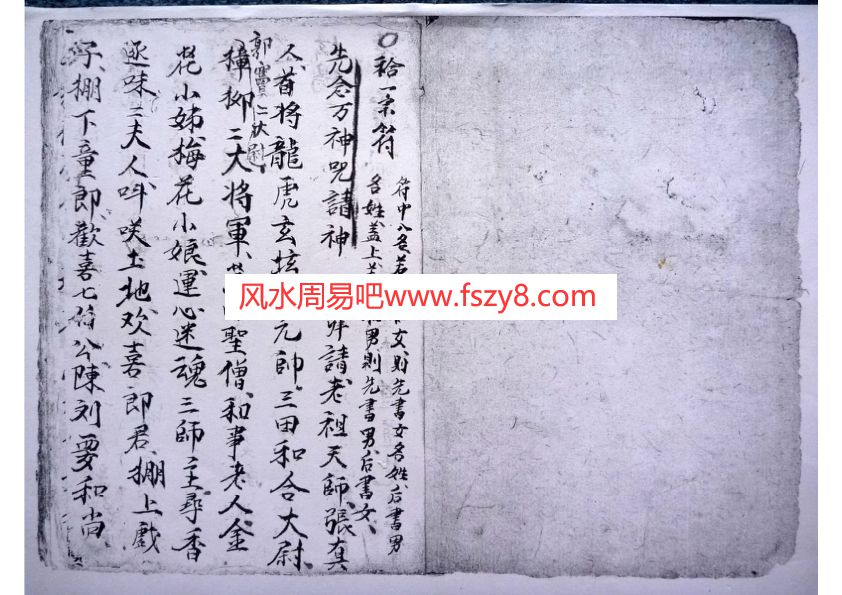 ○秴一宗符
符中入名若女則先書女名姓后書男
名姓盖上男則先書男后書女、
先念万神咒請神 拜請老祖天師張真
人首将龍虎玄坛元帥三田和合大尉
郭竇二狀
攆柳二大将軍聖僧和事老人金
花小姊梅花小娘運心迷魂三師主尋香
逐味二夫人叫咲土地欢喜郎君棚上戲
子棚下童郎歡喜七伯公陳刘要和尚
风水周易吧www.fszy8.com